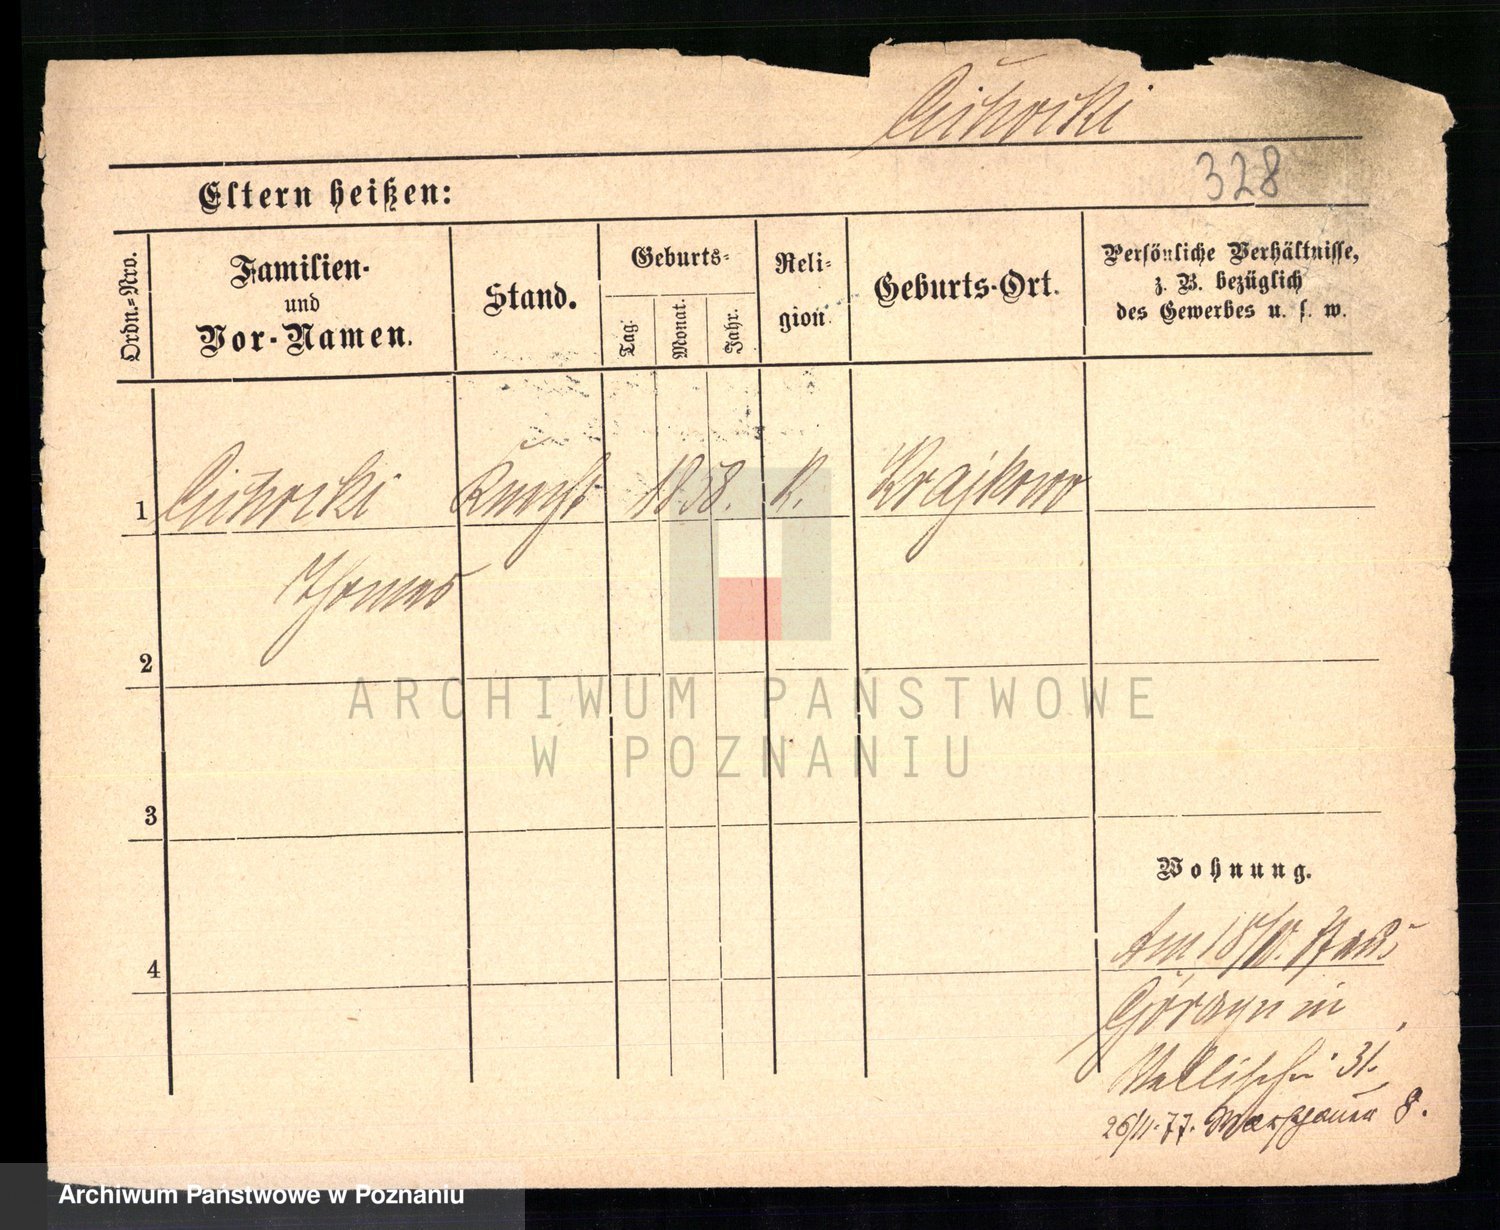 Cichocki
328
Eltern heißen:
Ordn.-Nro.
Familien-
und
Vor-Namen.
Stand.
Geburts-
Tag.
Monat.
Jahr.
Reli-
gion.
Geburts-Ort.
Persönliche Verhältnisse,
z. B. bezüglich
des Gewerbes u. s. w.
1 Cichocki Knecht 1858. K. Krajkowo
Thomas
2
3
4
Wohnung.
Am
in
Wallischei 31.
26/11.77. Warschauer 8.
ARCHIWUM PAŃSTWOWE
W POZNANIU
Archiwum Państwowe w Poznaniu